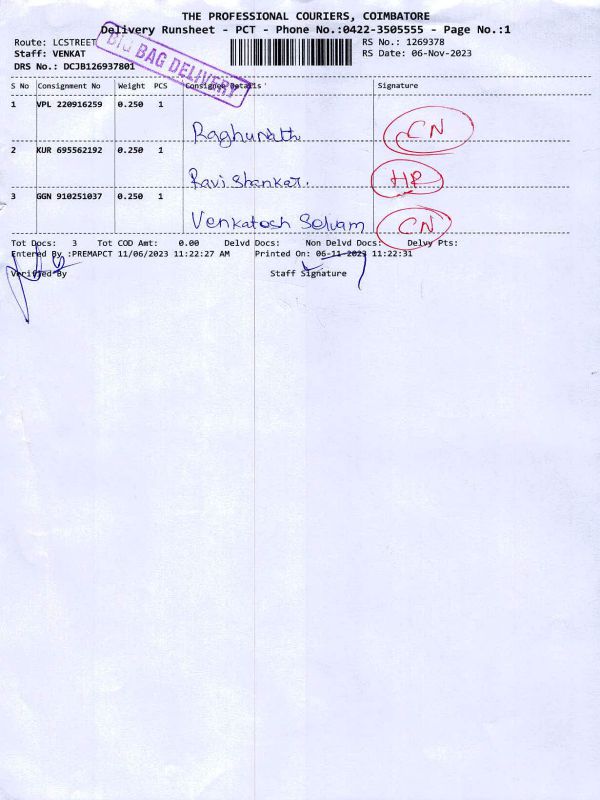 THE PROFESSIONAL COURIERS, COIMBATORE
Delivery Runsheet - PCT - Phone No.:0422-3505555 - Page No.:1
Route: LCSTREET RS No.: 1269378
Staff: VENKAT RS Date: 06-Nov-2023
DRS No.: DCJB126937801
BIG BAG DELIVERY
S No Consignment No Weight PCS Consignee Details Signature
1 VPL 220916259 0.250 1
Raghunath CN
2 KUR 695562192 0.250 1
Ravi Shankar. HR
3 GGN 910251037 0.250 1
Venkatosh Selvam CN
Tot Docs: 3 Tot COD Amt: 0.00 Delvd Docs: Non Delvd Docs: Delvy Pts:
Entered By :PREMAPCT 11/06/2023 11:22:27 AM Printed On: 06-11-2023 11:22:31
Verified By Staff Signature